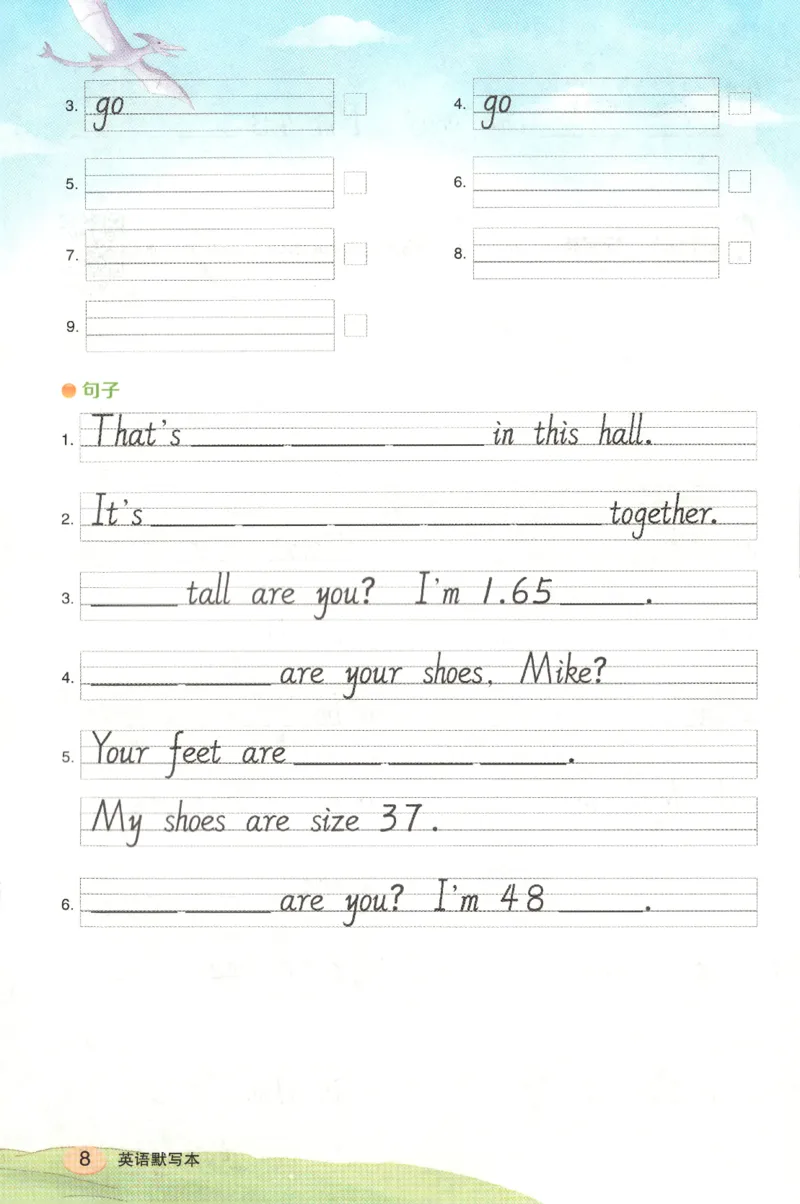 3. go
4. go
5.
6.
7.
8.
9.
句子
1. That's ______ ______ ______ in this hall.
2. It's ______ ______ ______ ______ ______ together.
3. ______ tall are you? I'm 1.65 ______.
4. ______ ______ are your shoes, Mike?
5. Your feet are ______ ______ ______.
My shoes are size 37.
6. ______ ______ are you? I'm 48 ______.
8 英语默写本